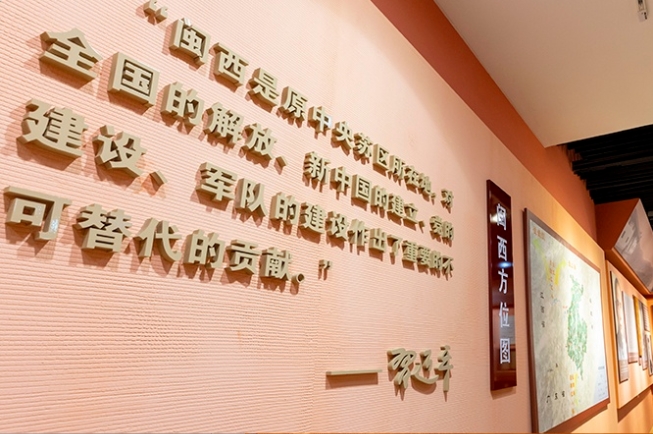 “闽西是原中央苏区所在地，对
全国的解放、新中国的建立、党的
建设、军队的建设作出了重要的不
可替代的贡献。”
——習近平
闽西方位图